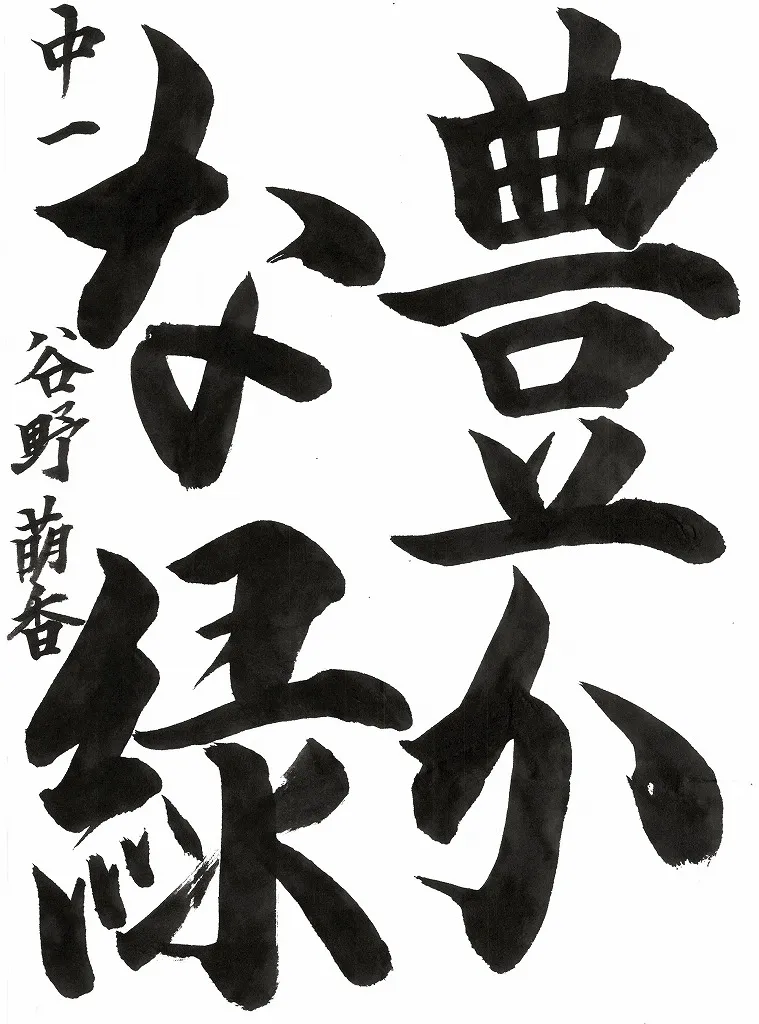 豊か
な緑
中一 谷野 萌香